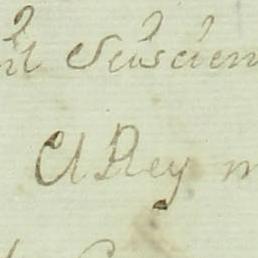 il Seiscien
El Rey